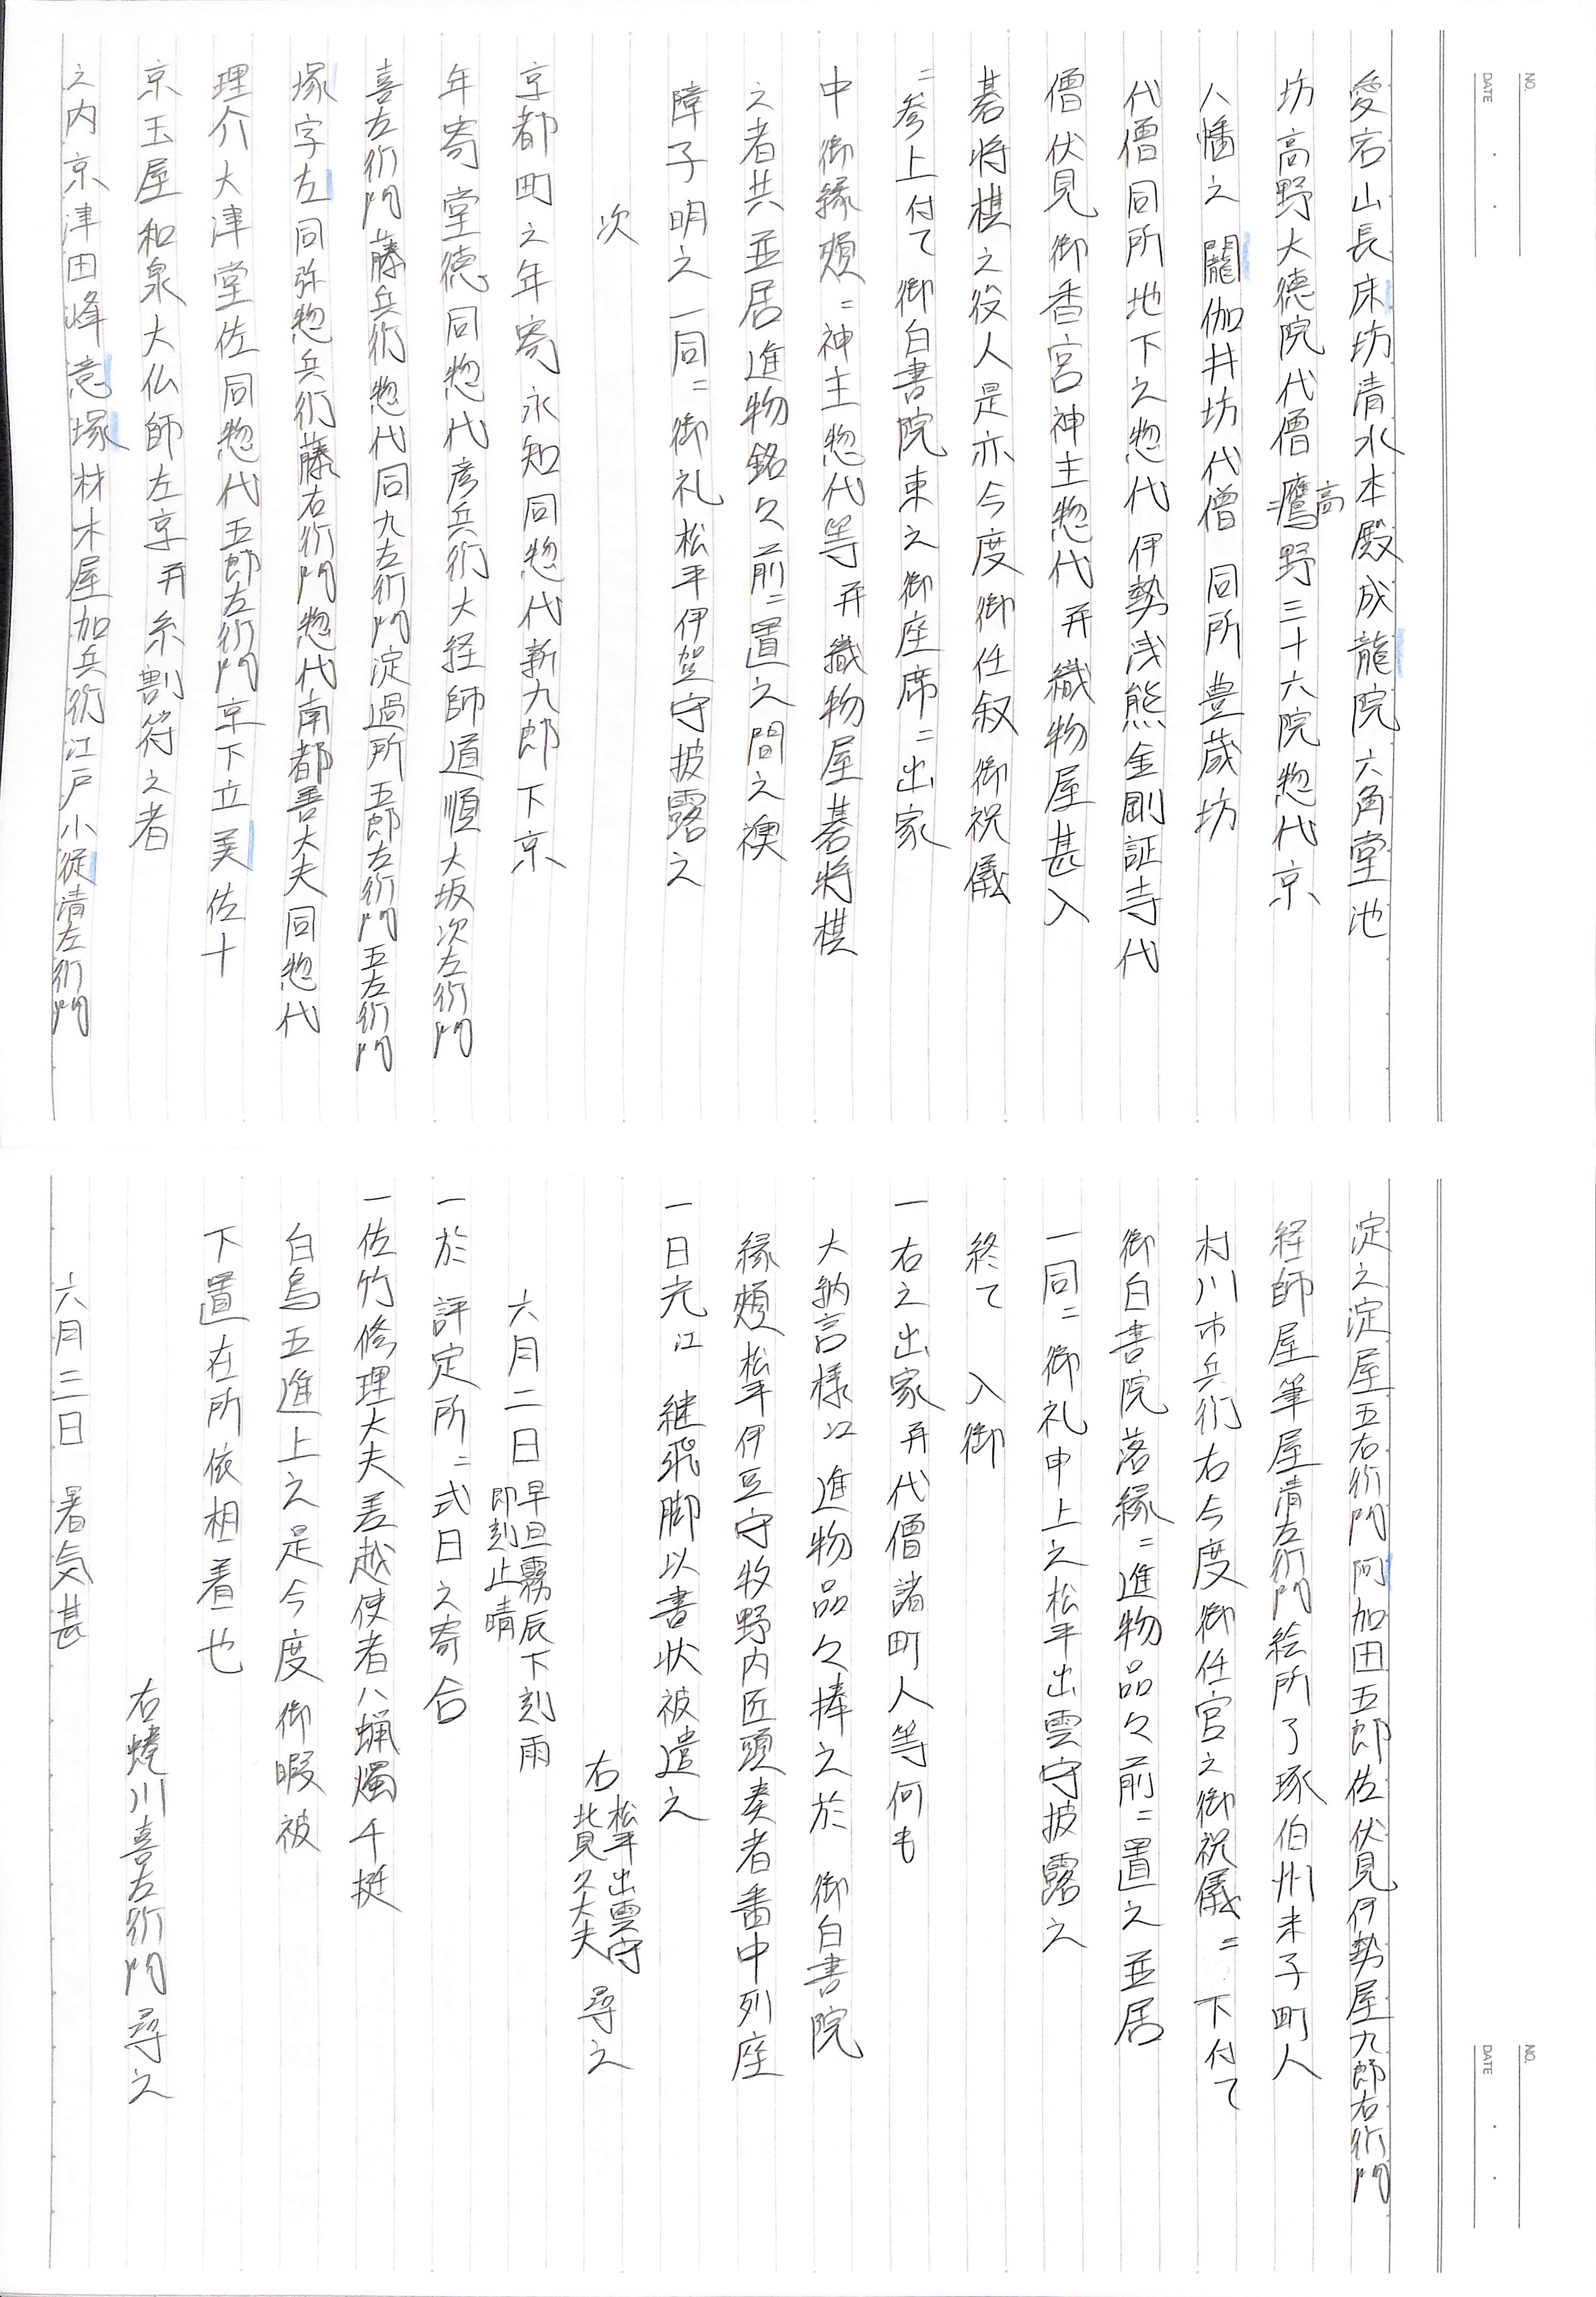 NO.
DATE
愛宕山長床坊清水本殿成龍院六角堂池
坊高野大徳院代僧鷹野三十六院惣代京
高
八幡之閼伽井坊代僧 同所豊蔵坊
代僧同所地下之惣代伊勢浅熊金剛証寺代
僧伏見御香宮神主惣代并織物屋甚入
碁将棋之役人是亦今度御任叙御祝儀
ニ参上付て御白書院東之御座席ニ出家
中御縁頬ニ神主惣代等并織物屋碁将棋
之者共並居進物銘々前ニ置之間之襖
障子明之一同ニ御礼松平伊賀守披露之
次
京都町之年寄永知同惣代新九郎下京
年寄堂徳同惣代彦兵衛大経師道順大坂次左衛門
喜左衛門藤兵衛惣代同九左衛門淀過所五郎左衛門五左衛門
塚字左同弥惣兵衛藤右衛門惣代南都善大夫同惣代
理介大津堂佐同惣代五郎左衛門京下立美佐十
京玉屋和泉大仏師左京并糸割符之者
之内京津田峰意塚材木屋加兵衛江戸小従清左衛門
淀之淀屋五右衛門阿加田五郎佐伏見伊勢屋九郎右衛門
経師屋筆屋清左衛門絵所了琢伯州米子町人
村川市兵衛右今度御任官之御祝儀ニ下付て
御白書院落縁ニ進物品々前ニ置之並居
一同ニ御礼申上之松平出雲守披露之
終て 入御
一右之出家并代僧諸町人等何も
大納言様江進物品々捧之於 御白書院
縁頬松平伊豆守牧野内匠頭奏者番中列座
一日光江 継飛脚以書状被遣之
右 松平出雲守 北見久大夫 尋之
六月二日 早旦霧辰下刻雨 即刻止晴
一於 評定所ニ式日之寄合
一佐竹修理大夫差越使者八蝋燭千挺
白鳥五進上之是今度御暇被
下置在所依相着也
右蜷川喜左衛門尋之
六月三日 暑気甚
NO.
DATE